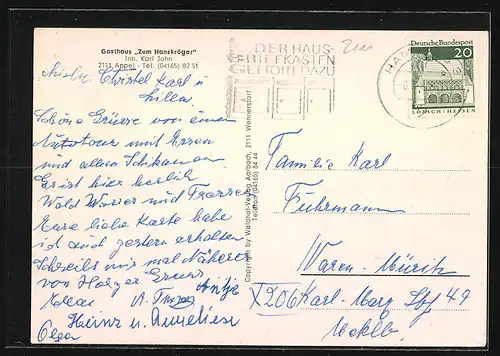 Gasthaus „Zum Hanskröger"
Inh. Karl John
2111 Appel - Tel. (04165) 87 51
DER HAUS-
BRIEFKASTEN
GEHÖRT DAZU
Deutsche Bundespost
20
LORSCH/HESSEN
HAM
Christel Karl u
Schöne Grüsse von einer
Autotour mit Essen
und allen Schikanen
Es ist hier herrlich
Wald Wasser und
Eure liebe Karte habe
ich auch gestern erhalten
Schreibt mir mal Näheres
von Holger Gruss
Antje
Heinz u. Anneliese
Olga
Copyright by Waldhof-Verlag Aarbach, 2111 Wennerstorf
Telefon (04165) 84 44
Familie Karl
Fuhrmann
Waren-Müritz
X206 Karl-Marx Str 49
Mecklb.